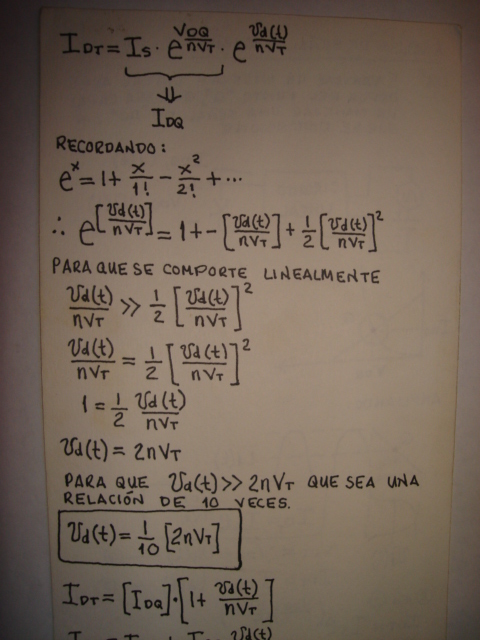 I_DT = I_S · e^(V_DQ/nV_T) · e^(v_d(t)/nV_T)
⇓
I_DQ
RECORDANDO:
e^x = 1 + x/1! - x²/2! + ···
∴ e^[v_d(t)/nV_T] = 1 + - [v_d(t)/nV_T] + 1/2 [v_d(t)/nV_T]²
PARA QUE SE COMPORTE LINEALMENTE
v_d(t)/nV_T >> 1/2 [v_d(t)/nV_T]²
v_d(t)/nV_T = 1/2 [v_d(t)/nV_T]²
1 = 1/2 v_d(t)/nV_T
v_d(t) = 2nV_T
PARA QUE v_d(t) >> 2nV_T QUE SEA UNA
RELACIÓN DE 10 VECES.
v_d(t) = 1/10 [2nV_T]
I_DT = [I_DQ]·[1 + v_d(t)/nV_T]